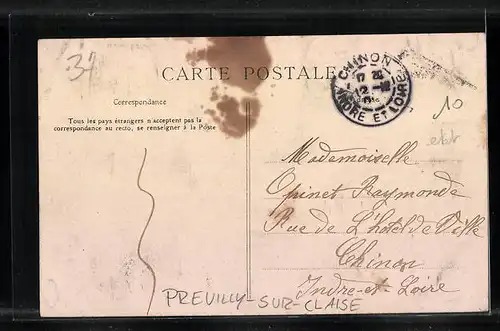 37
CARTE POSTALE
CHINON
17 20
12 -12
INDRE ET LOIRE
10
Correspondance
Tous les pays étrangers n'acceptent pas la
correspondance au recto, se renseigner à la Poste
Mademoiselle
Opinet Raymonde
Rue de L'hôtel de Ville
Chinon
Indre-et-Loire
PREUILLY-SUR-CLAISE